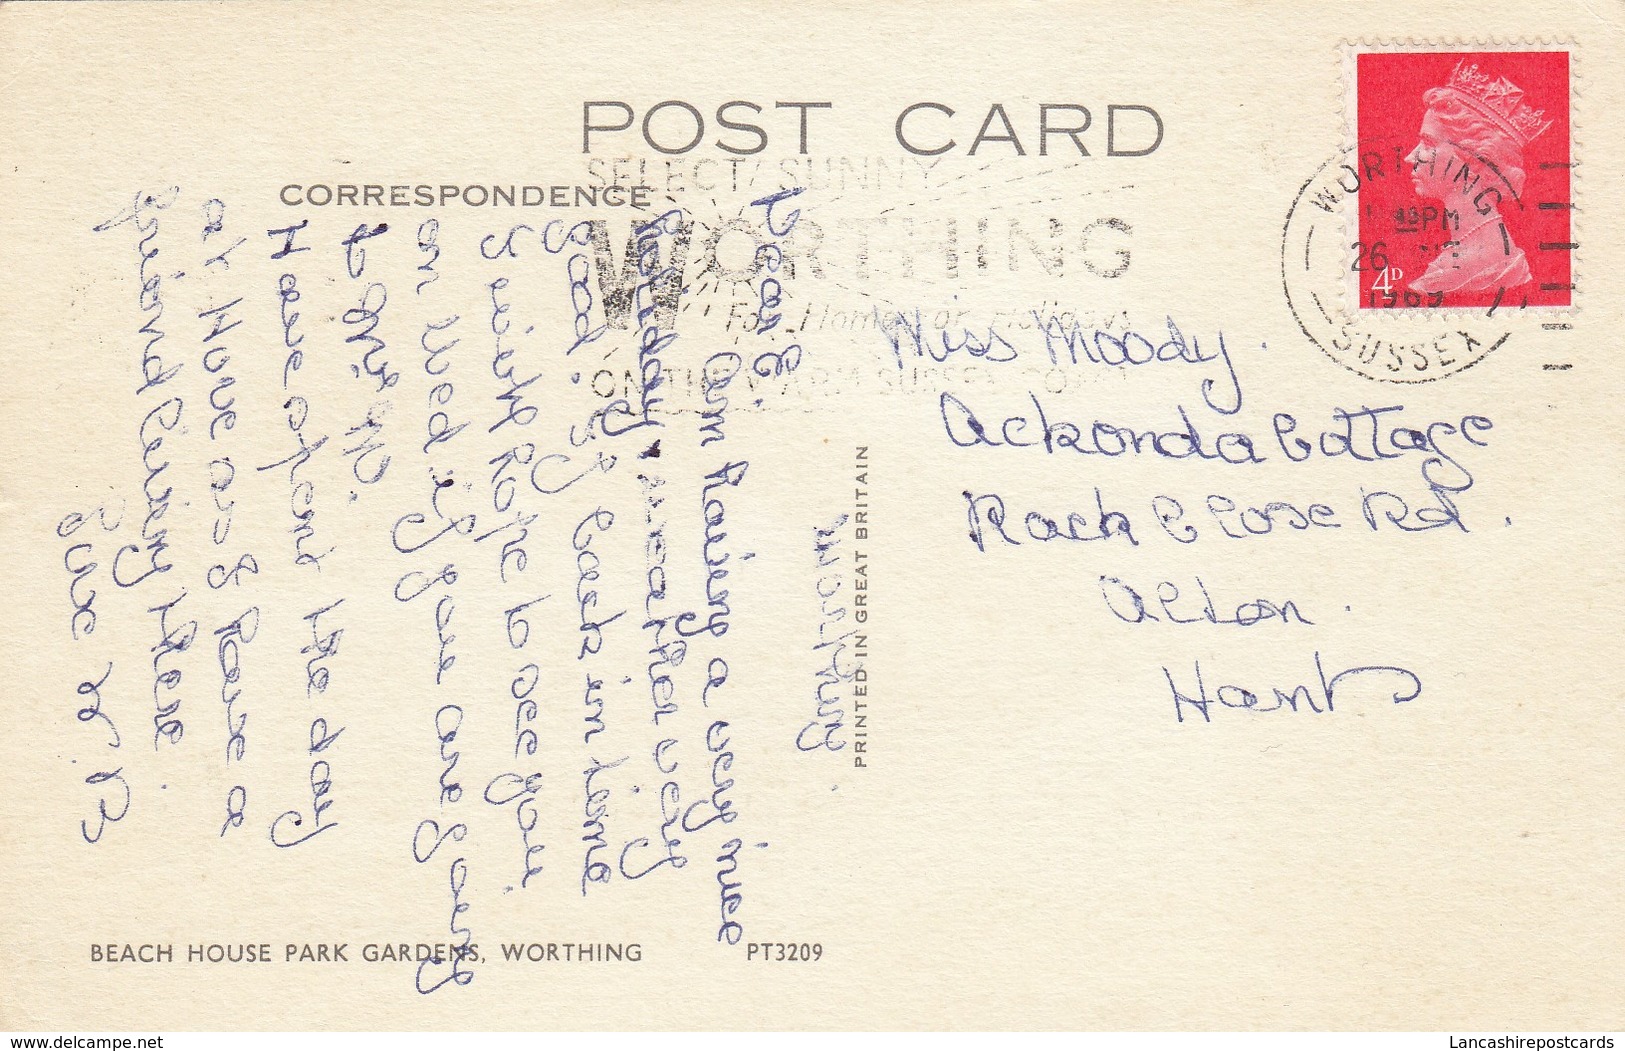 POST CARD
CORRESPONDENCE
SELECT / SUNNY
WORTHING
For Home or Holidays
ON THE WARM SUSSEX COAST
WORTHING
PM
26
1969
SUSSEX
4D
Worthing.
Dear E
Am Having a very nice
Holiday, weather very
good. Get back in time
Hope to see you
on Wed if you are going
to the W.
Have spent the day
at Hove as I have a
friend living there.
W. B
Miss Moody.
Ackonda Cottage
Rack Close Rd.
Alton.
Hants
PRINTED IN GREAT BRITAIN
BEACH HOUSE PARK GARDENS, WORTHING
PT3209
delcampe.net
Lancashirepostcards